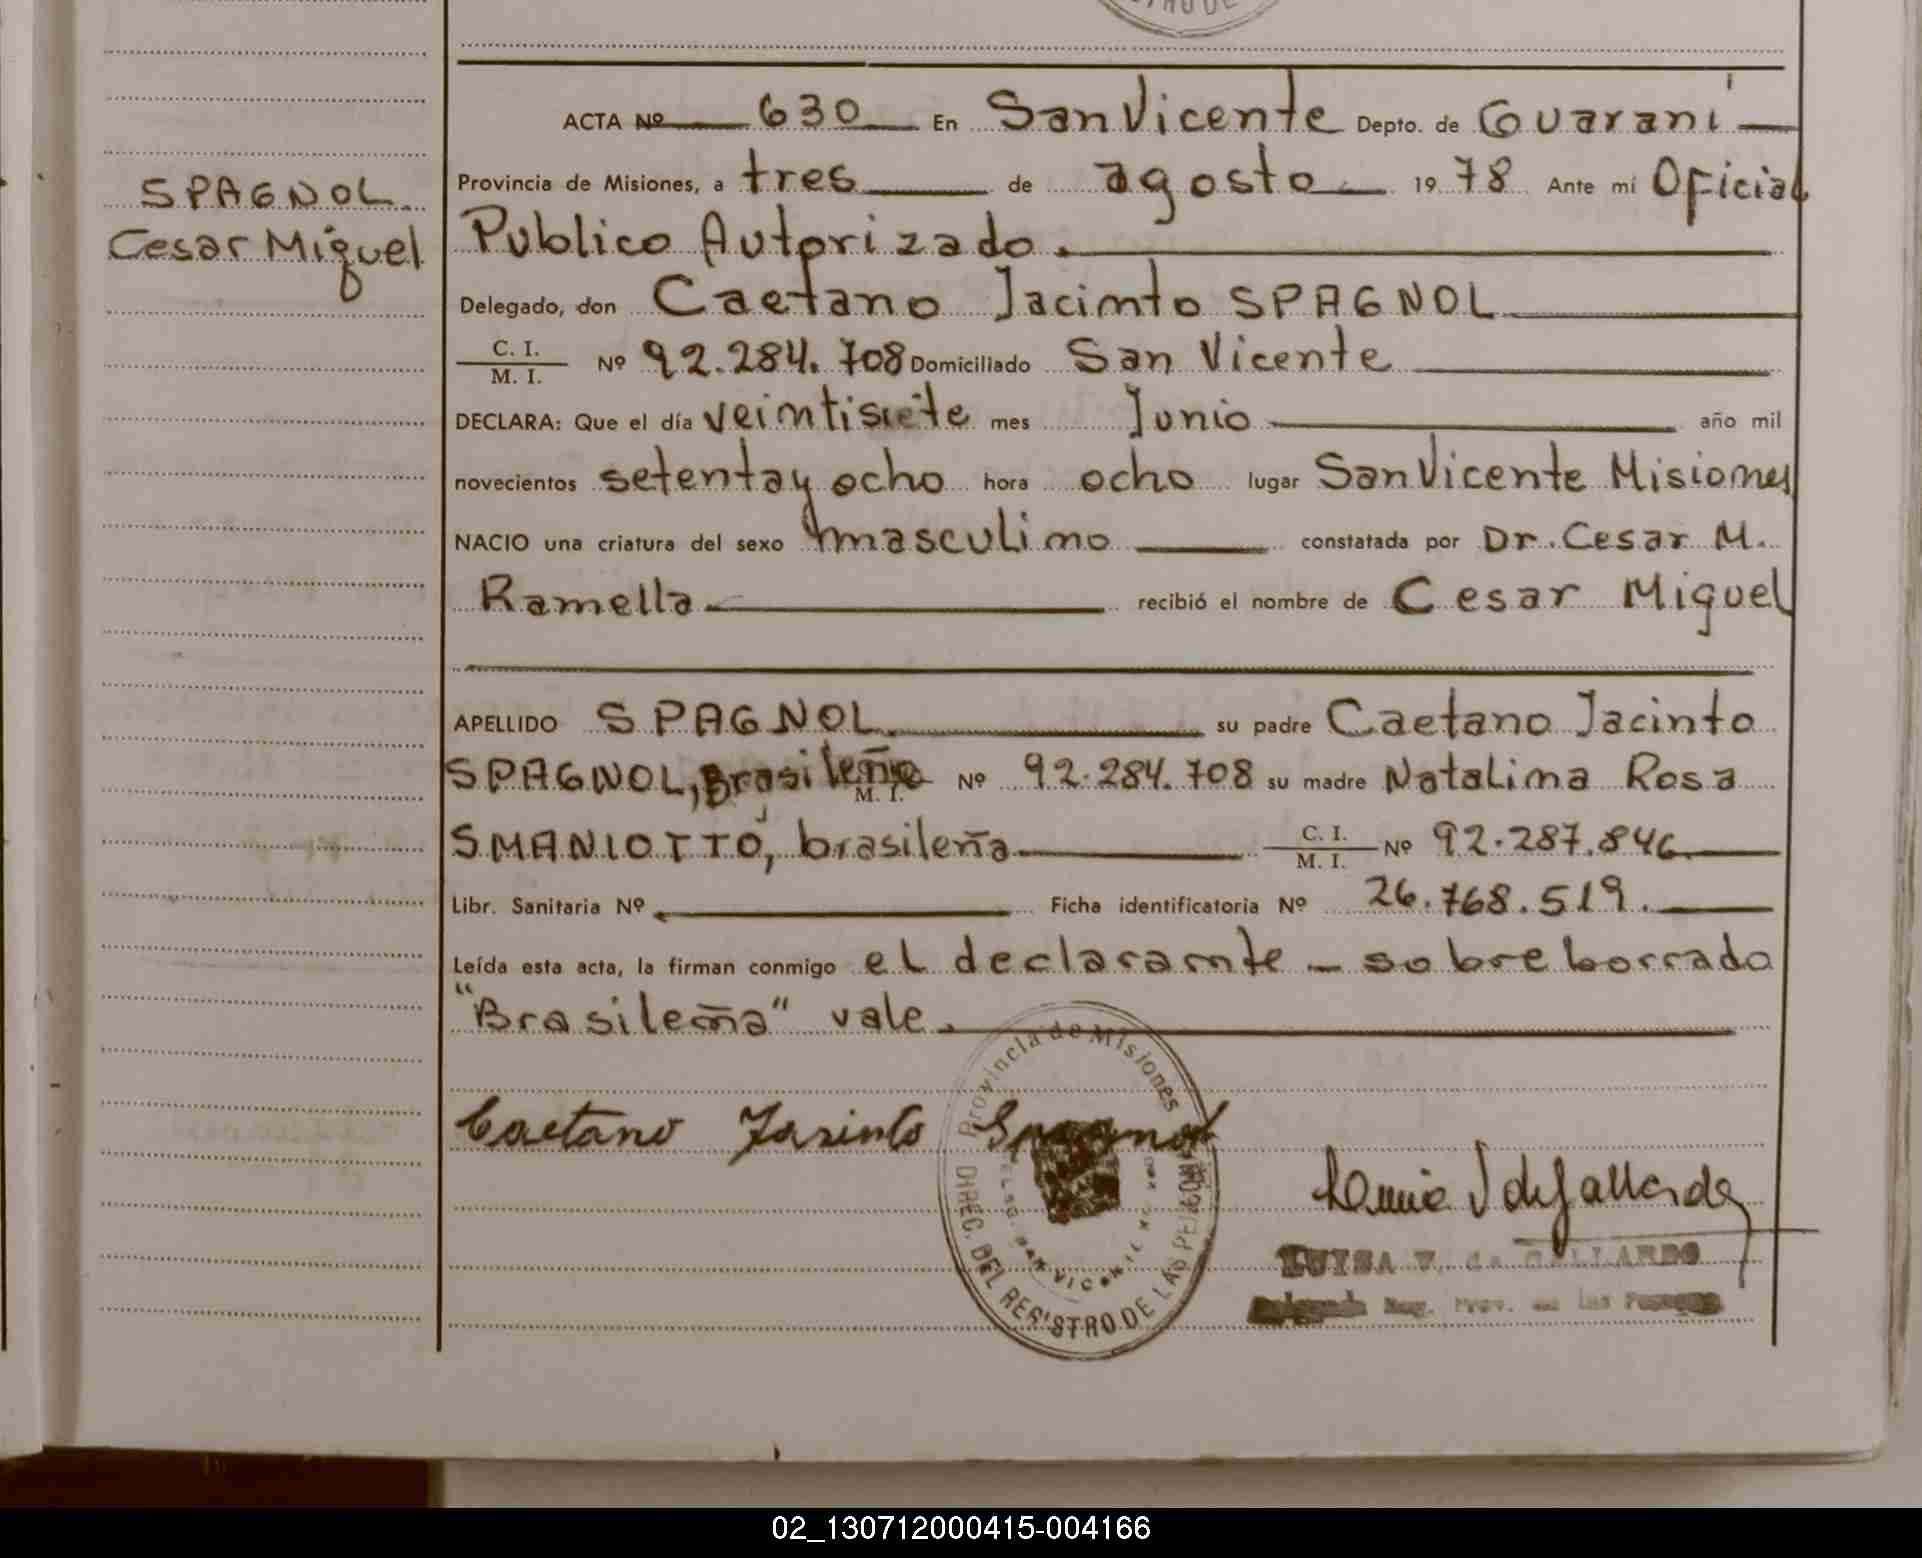 TRO DE
ACTA Nº 630 En San Vicente Depto. de Guaraní
SPAGNOL
Cesar Miguel
Provincia de Misiones, a tres de agosto 19 78 Ante mí Oficial
Publico Autorizado.
Delegado, don Caetano Jacinto SPAGNOL
C. I.
M. I. Nº 92.284.708 Domiciliado San Vicente
DECLARA: Que el día veintisiete mes Junio año mil
novecientos setenta y ocho hora ocho lugar San Vicente Misiones
NACIO una criatura del sexo masculino constatada por Dr. Cesar M.
Ramella recibió el nombre de Cesar Miguel
APELLIDO SPAGNOL su padre Caetano Jacinto
SPAGNOL, Brasileño M. I. Nº 92.284.708 su madre Natalina Rosa
SMANIOTTO, brasileña C. I. M. I. Nº 92.287.846
Libr. Sanitaria Nº Ficha identificatoria Nº 26.768.519.
Leída esta acta, la firman conmigo el declarante - sobreborrado
"Brasileña" vale.
Provincia de Misiones
Caetano Jasinto Spagnol
DIREC. DEL REGISTRO DE LAS PE
LUISA V. de GALLARDO
02_130712000415-004166